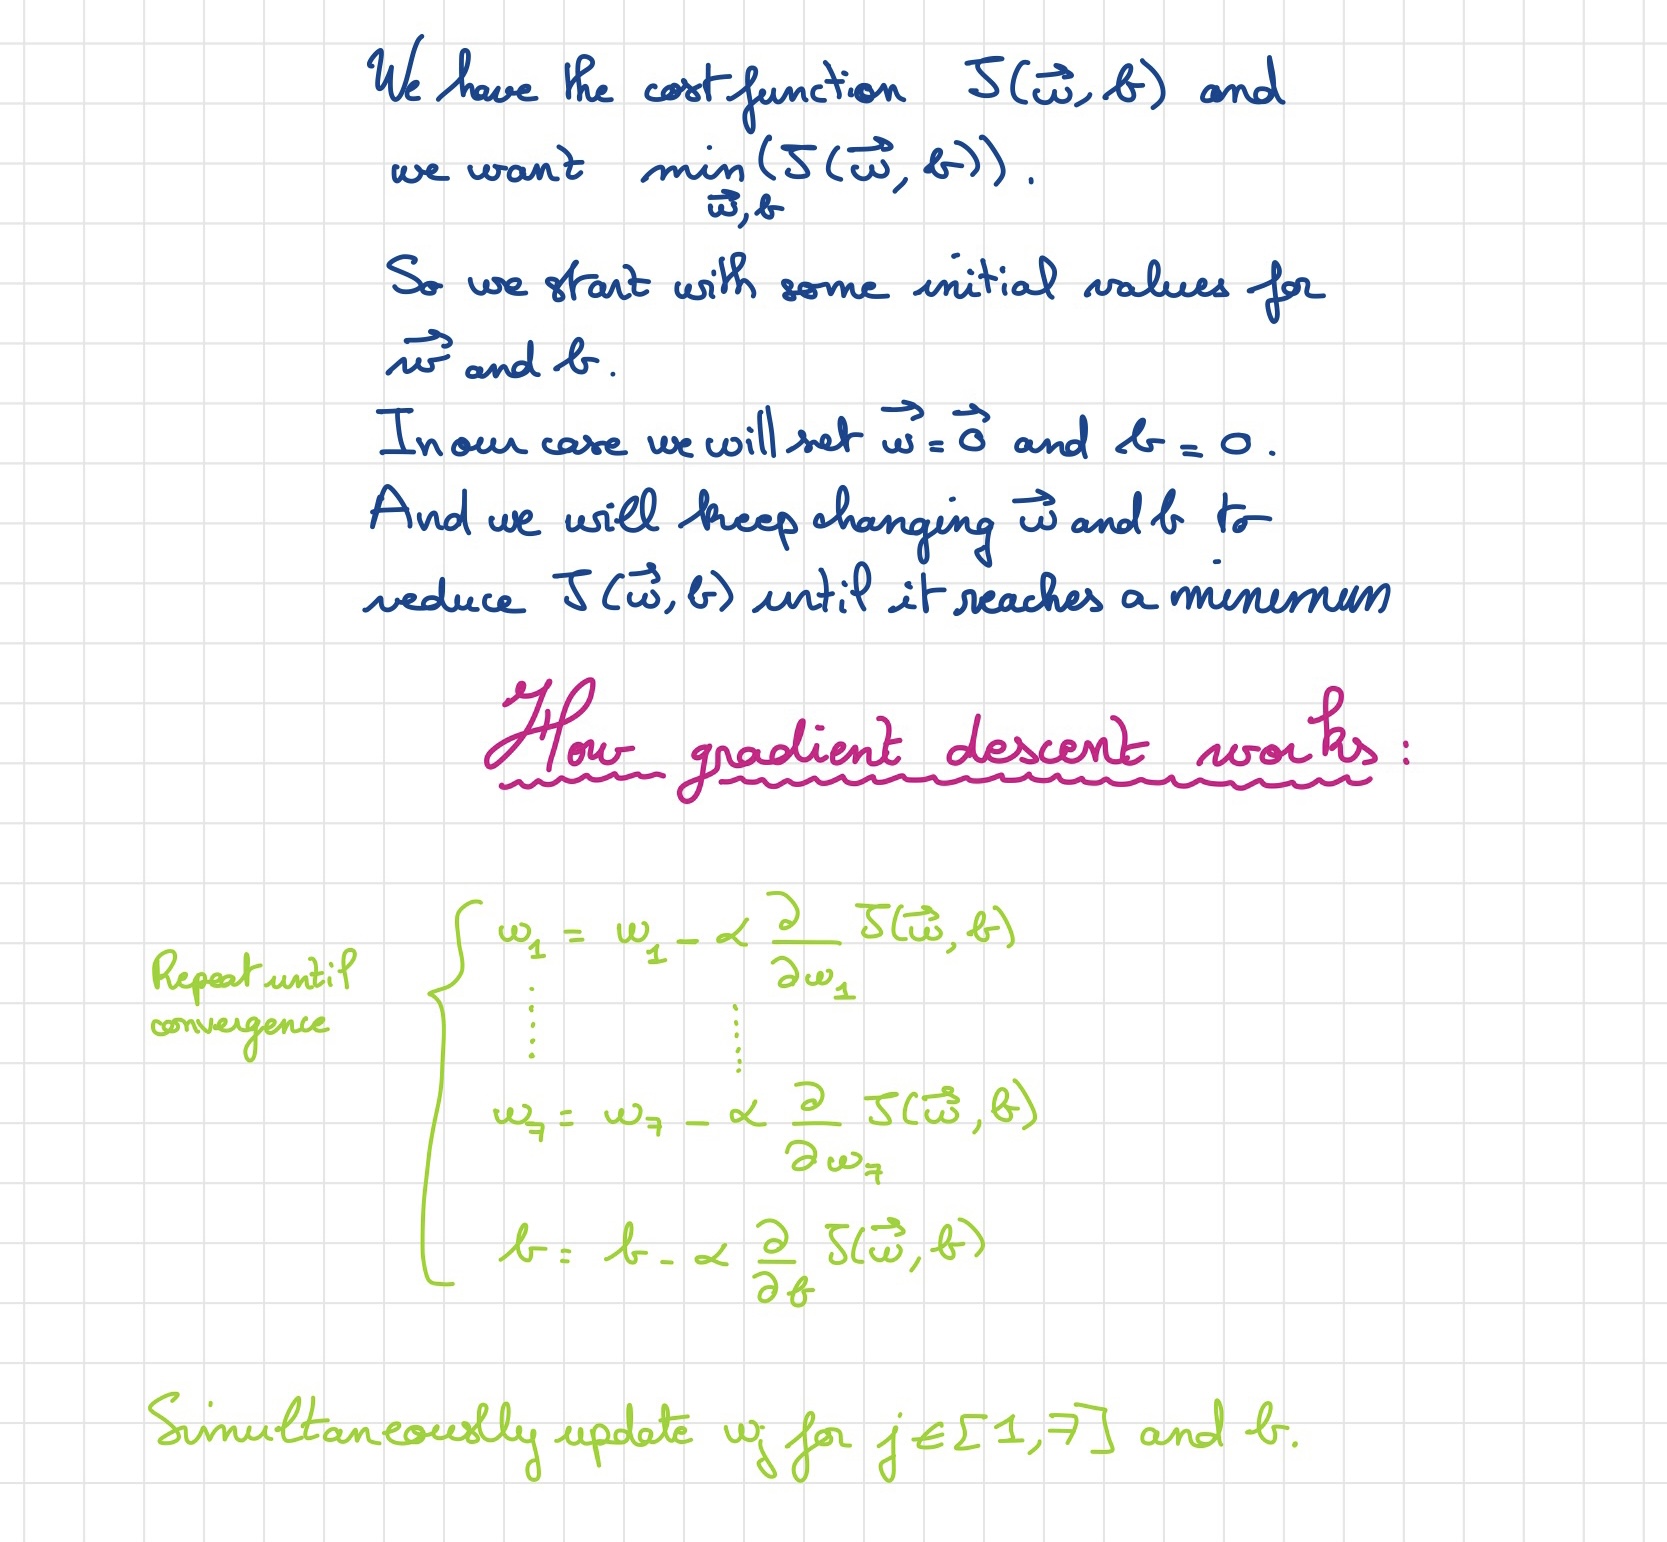 We have the cost function J(w⃗, b) and
we want min(J(w⃗, b)).
w⃗, b
So we start with some initial values for
w⃗ and b.
In our case we will set w⃗ = 0⃗ and b = 0.
And we will keep changing w⃗ and b to
reduce J(w⃗, b) until it reaches a minimum
How gradient descent works:
Repeat until
convergence
w₁ = w₁ - α ∂/∂w₁ J(w⃗, b)
⋮ ⋮
w₇ = w₇ - α ∂/∂w₇ J(w⃗, b)
b = b - α ∂/∂b J(w⃗, b)
Simultaneously update wⱼ for j ∈ [1, 7] and b.